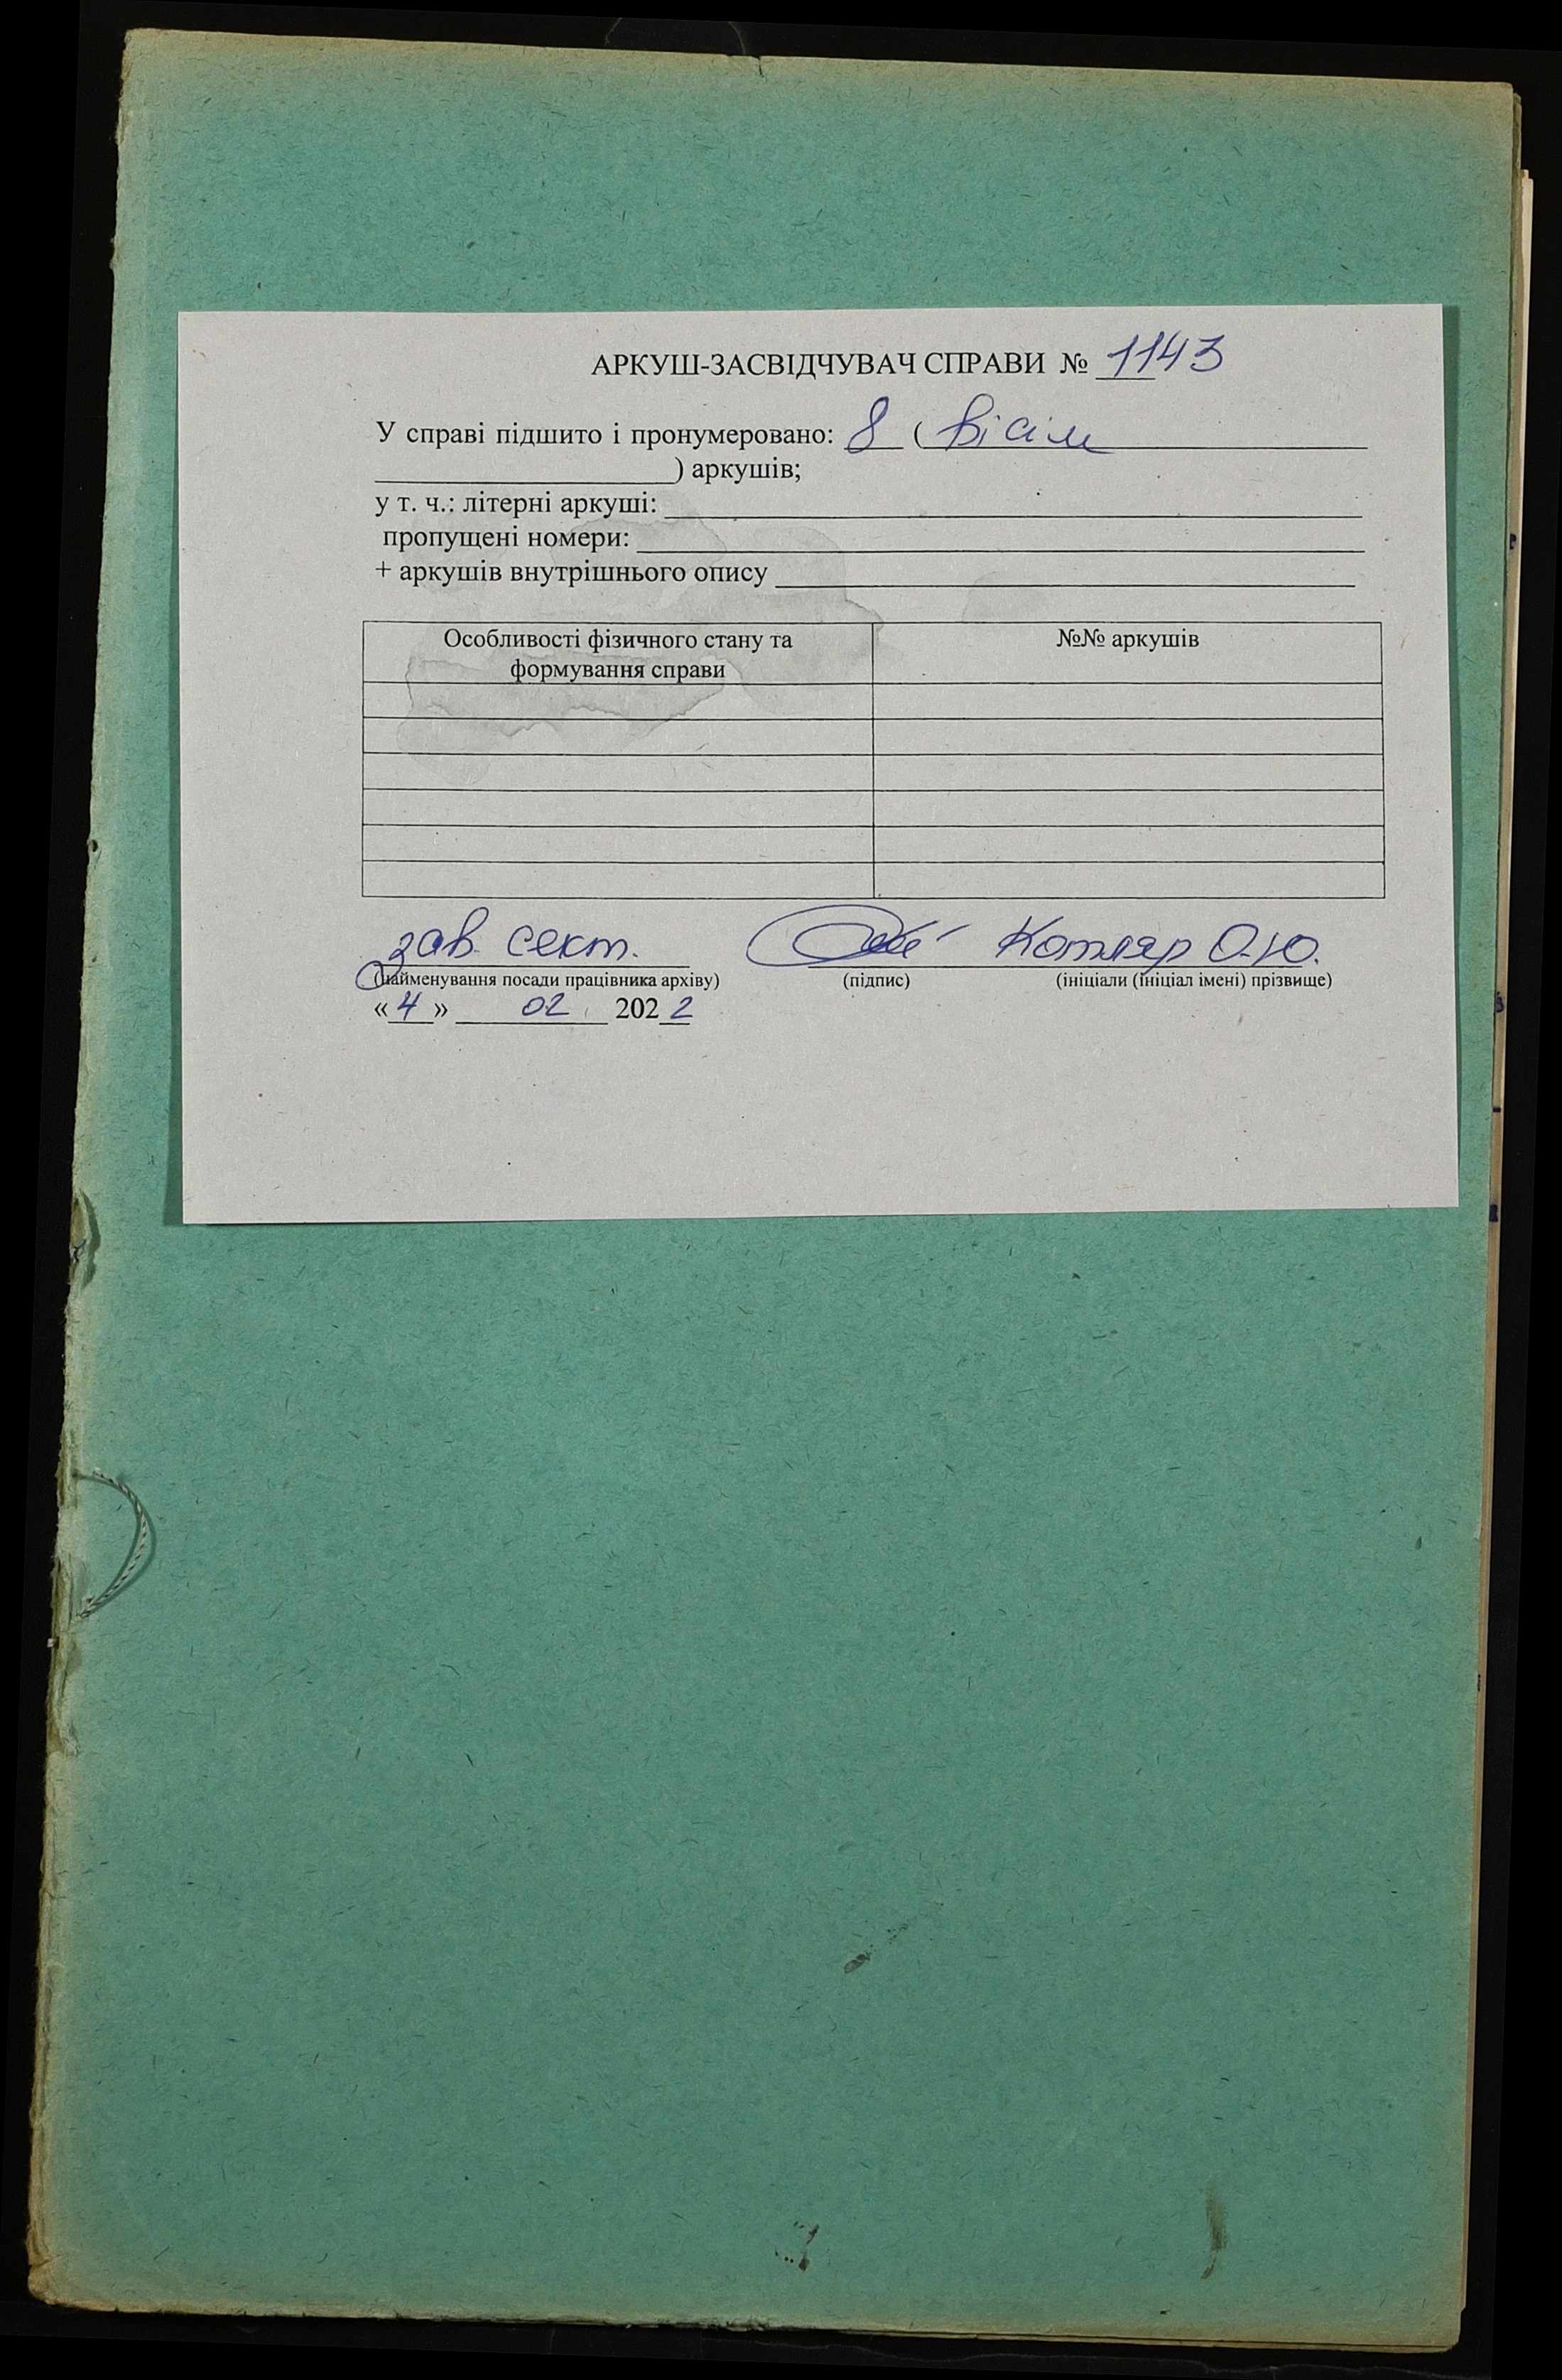 АРКУШ-ЗАСВІДЧУВАЧ СПРАВИ № 1143
У справі підшито і пронумеровано: 8 ( вісім
) аркушів;
у т. ч.: літерні аркуші:
пропущені номери:
+ аркушів внутрішнього опису
Особливості фізичного стану та №№ аркушів
формування справи
зав. сект. Котляр О.Ю.
(найменування посади працівника архіву) (підпис) (ініціали (ініціал імені) прізвище)
« 4 » 02. 2022